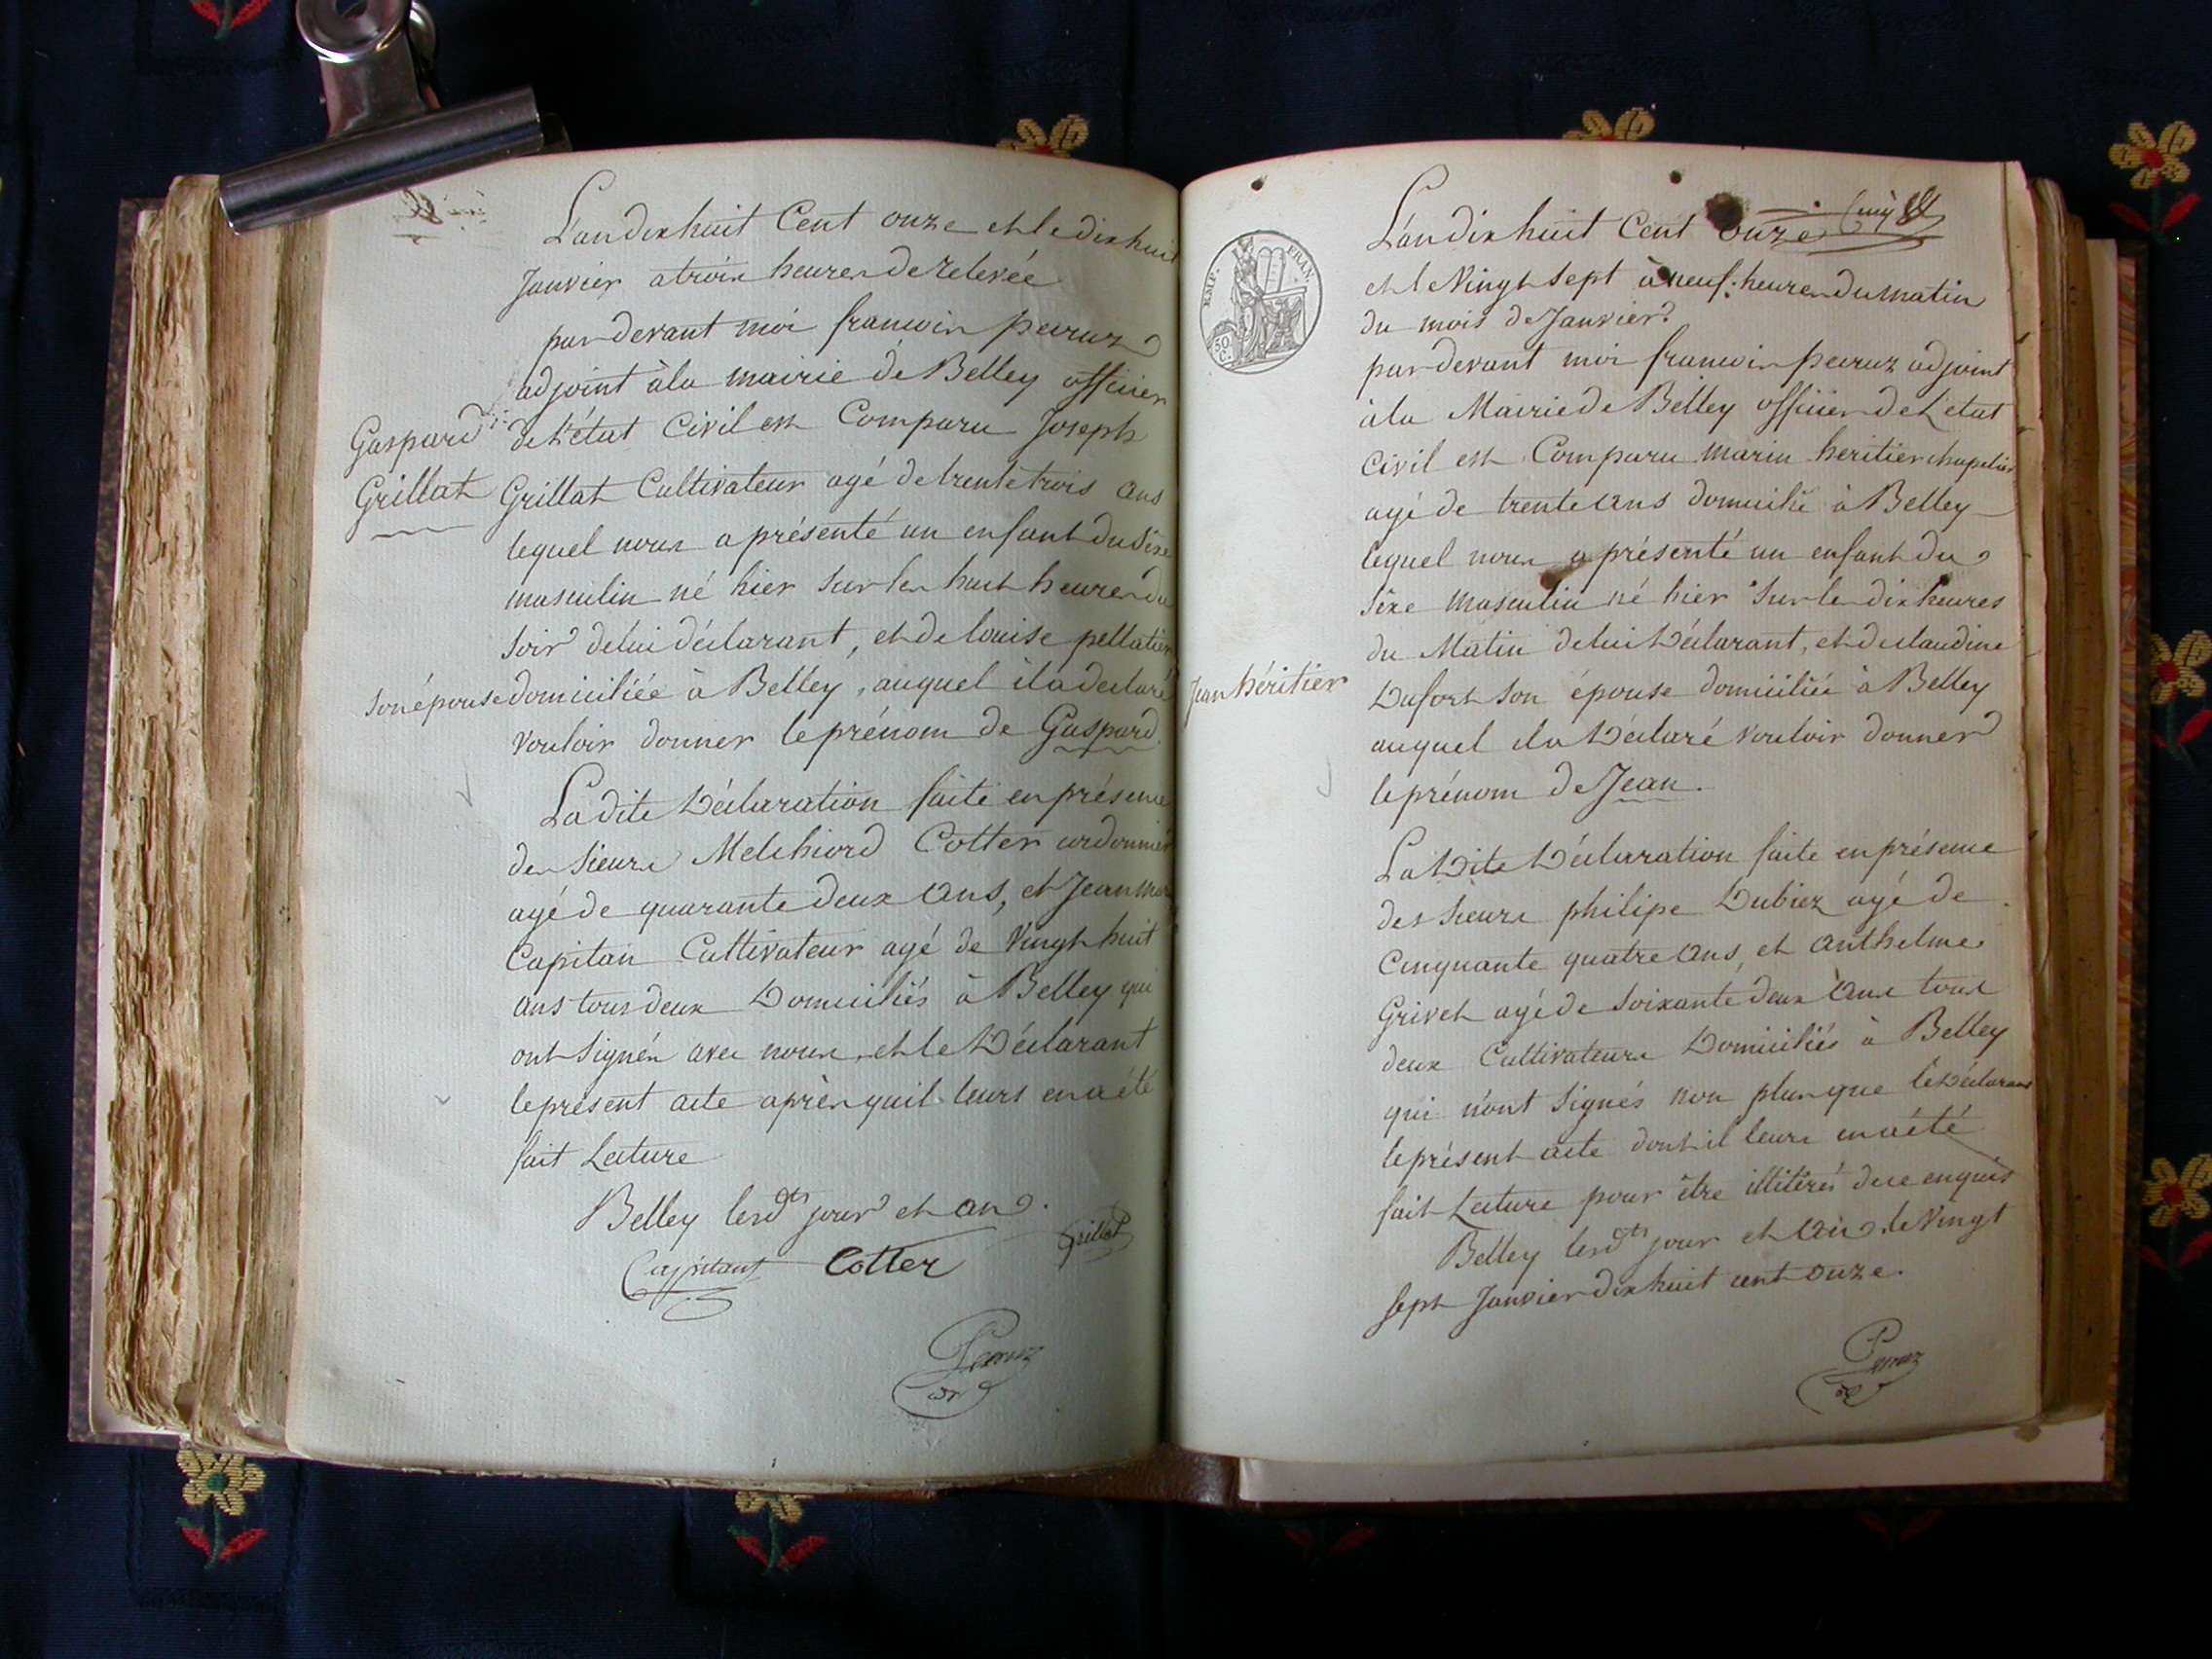 L'an dix huit Cent onze et le dix huit
Janvier a trois heures de relevée
par devant moi francois peruz
adjoint à la mairie de Belley officier
Gaspard
de l'état Civil est Comparu Joseph
Grillat
Grillat Cultivateur agé de trente trois ans
lequel nous a présenté un enfant du sexe
masculin né hier sur les huit heures du
soir de lui déclarant, et de louise pellatier
son épouse domiciliée à Belley, auquel il a declaré
vouloir donner le prénom de Gaspard
La dite Déclaration faite en présence
des sieurs Melchiord Cotter cordonnier
agé de quarante deux ans, et Jean
Capitan Cultivateur agé de Vingt huit
ans tous deux Domiciliés à Belley qui
ont signés avec nous, et le Déclarant
le présent acte après quil leurs en a été
fait Lecture
Belley lesdts jour et an.
Capitant Cotter Grillat
L'an dix huit Cent onze
EMP. FRAN.
50 C.
et le Vingt sept à neuf heures du matin
du mois de Janvier
par devant moi francois peruz adjoint
à la Mairie de Belley officier de l'etat
Civil est Comparu marin heritier chapelier
agé de trente ans domicilié à Belley
lequel nous a présenté un enfant du
sexe masculin né hier sur les dix heures
du Matin de lui Déclarant, et de claudine
Jean héritier
Dufort son épouse domiciliée à Belley
auquel il a Déclaré vouloir donner
le prénom de Jean.
La Dite Déclaration faite en présence
des sieurs philipe Dubiez agé de
Cinquante quatre ans, et anthelme
Grivet agé de soixante deux ans tous
deux Cultivateurs Domiciliés à Belley
qui n'ont signés non plus que le Déclarant
le présent acte dont il leurs en a été
fait Lecture pour être illitérés de ce enquis
Belley lesdts jour et an. le Vingt
sept Janvier dix huit cent onze.